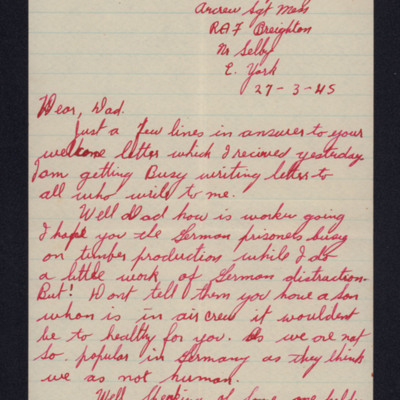 Aircrew Sgt Mess
RAF Breighton
Nr Selby
E. York
27-3-45
Dear, Dad.
Just a few lines in answer to your
welcome letter which I recieved yesterday
I am getting Busy writing letter to
all who write to me.
Well Dad how is worker going
I hope you the German prisoners busy
on timber production while I do
a little work of German distraction.
But! Dont tell them you have a son
whom is in air crew it wouldent
be to healthy for you. As we are not
so popular in Germany as they think
we as not human.
Well speaking of some one